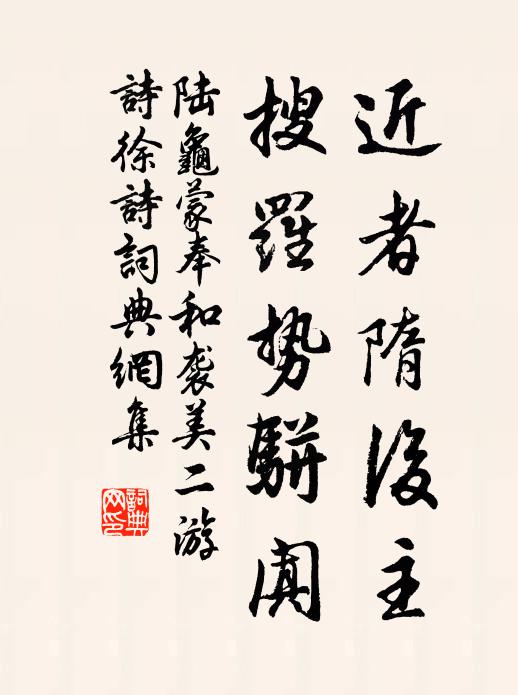 近者隋後主
搜羅势駢闐
陆龜蒙奉和袭美二游
詩徐詩詞典網集
詞典网印